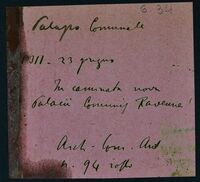 6.34
Palazzo Comunale
23 giugno
In caminata nova
Palacii Comunis Ravenne
Arch. Com. And
n. 94